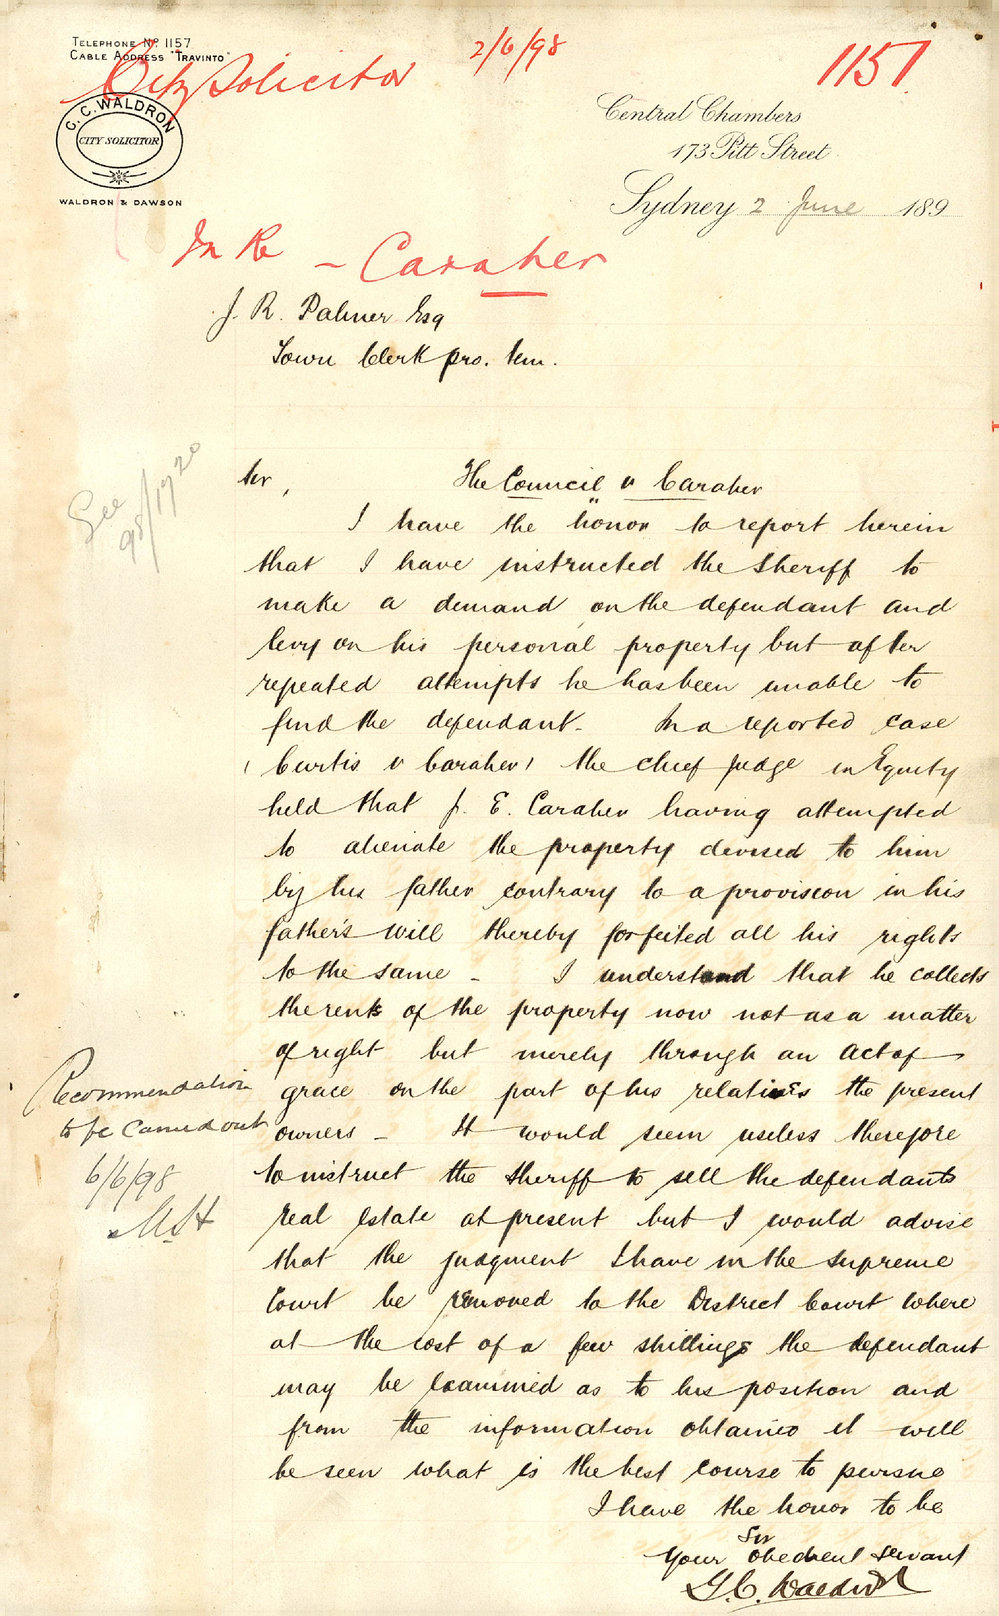 TELEPHONE No. 1157
CABLE ADDRESS "TRAVINTO"
City Solicitor
2/6/98
1151
G. C. WALDRON
CITY SOLICITOR
WALDRON & DAWSON
Central Chambers
173 Pitt Street
Sydney 2 June 189
In Re - Caraher
J. R. Palmer Esq
Town Clerk pro. tem.
See
98/1720
Sir,
The Council v Caraher
I have the honor to report herein
that I have instructed the Sheriff to
make a demand on the defendant and
levy on his personal property but after
repeated attempts he has been unable to
find the defendant. In a reported case
(Curtis v Caraher) the chief judge in Equity
held that J. E. Caraher having attempted
to alienate the property devised to him
by his father contrary to a provision in his
father's will thereby forfeited all his rights
to the same - I understand that he collects
the rents of the property now not as a matter
of right but merely through an act of
grace on the part of his relatives the present
owners - It would seem useless therefore
to instruct the Sheriff to sell the defendants
real estate at present but I would advise
that the judgment I have in the Supreme
Court be removed to the District Court where
at the cost of a few shillings the defendant
may be examined as to his position and
from the information obtained it will
be seen what is the best course to pursue
I have the honor to be
Sir
Your obedient servant
G. C. Waldron
Recommendation
to be carried out
6/6/98